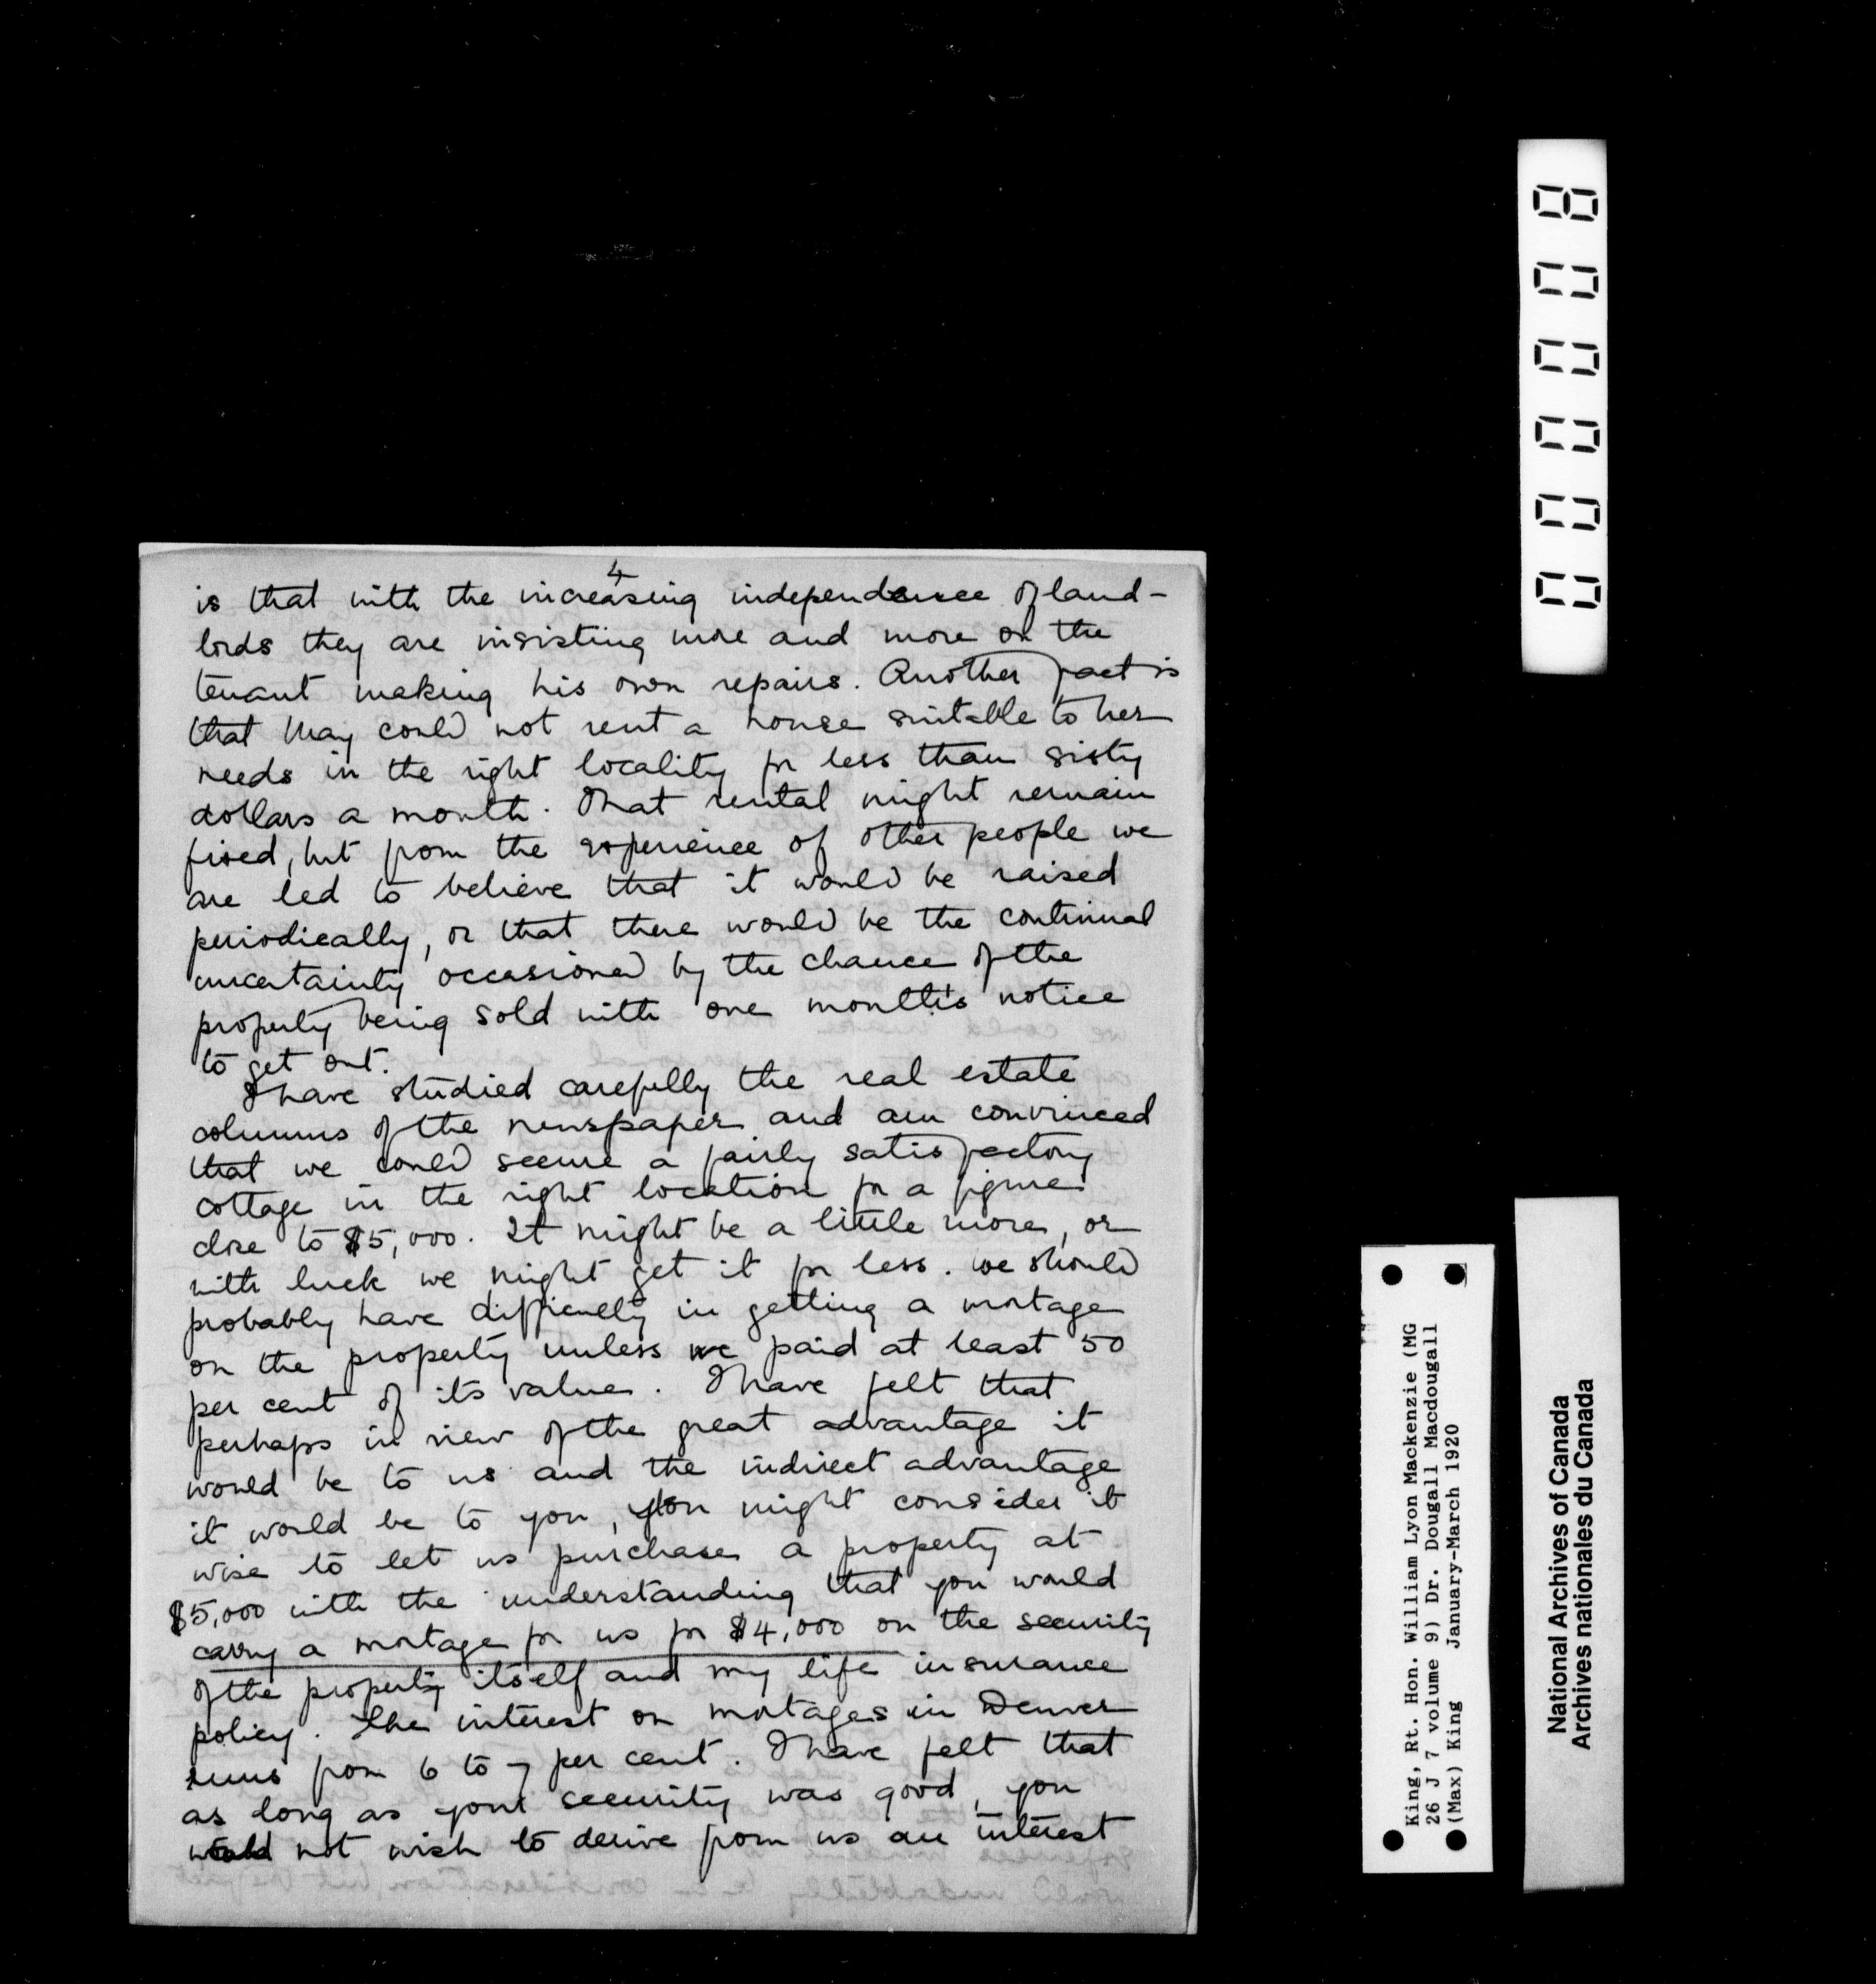 4
is that with the increasing independence of land-
lords they are insisting more and more on the
tenant making his own repairs. Another fact is
that May could not rent a house suitable to her
needs in the right locality for less than sixty
dollars a month. That rental might remain
fixed, but from the experience of other people we
are led to believe that it would be raised
periodically, or that there would be the continual
uncertainty occasioned by the chance of the
property being sold with one month's notice
to get out.
I have studied carefully the real estate
columns of the newspaper and am convinced
that we could secure a fairly satisfactory
cottage in the right location for a figure
close to $5,000. It might be a little more, or
with luck we might get it for less. We should
probably have difficulty in getting a mortage
on the property unless we paid at least 50
per cent of its value. I have felt that
perhaps in view of the great advantage it
would be to us and the indirect advantage
it would be to you, you might consider it
wise to let us purchase a property at
$5,000 with the understanding that you would
carry a mortage for us for $4,000 on the security
of the property itself and my life insurance
policy. The interest on mortages in Denver
runs from 6 to 7 per cent. I have felt that
as long as your security was good, you
would not wish to derive from us an interest
000008
King, Rt. Hon. William Lyon Mackenzie (MG
26 J 7 volume 9) Dr. Dougall Macdougall
(Max) King January-March 1920
National Archives of Canada
Archives nationales du Canada